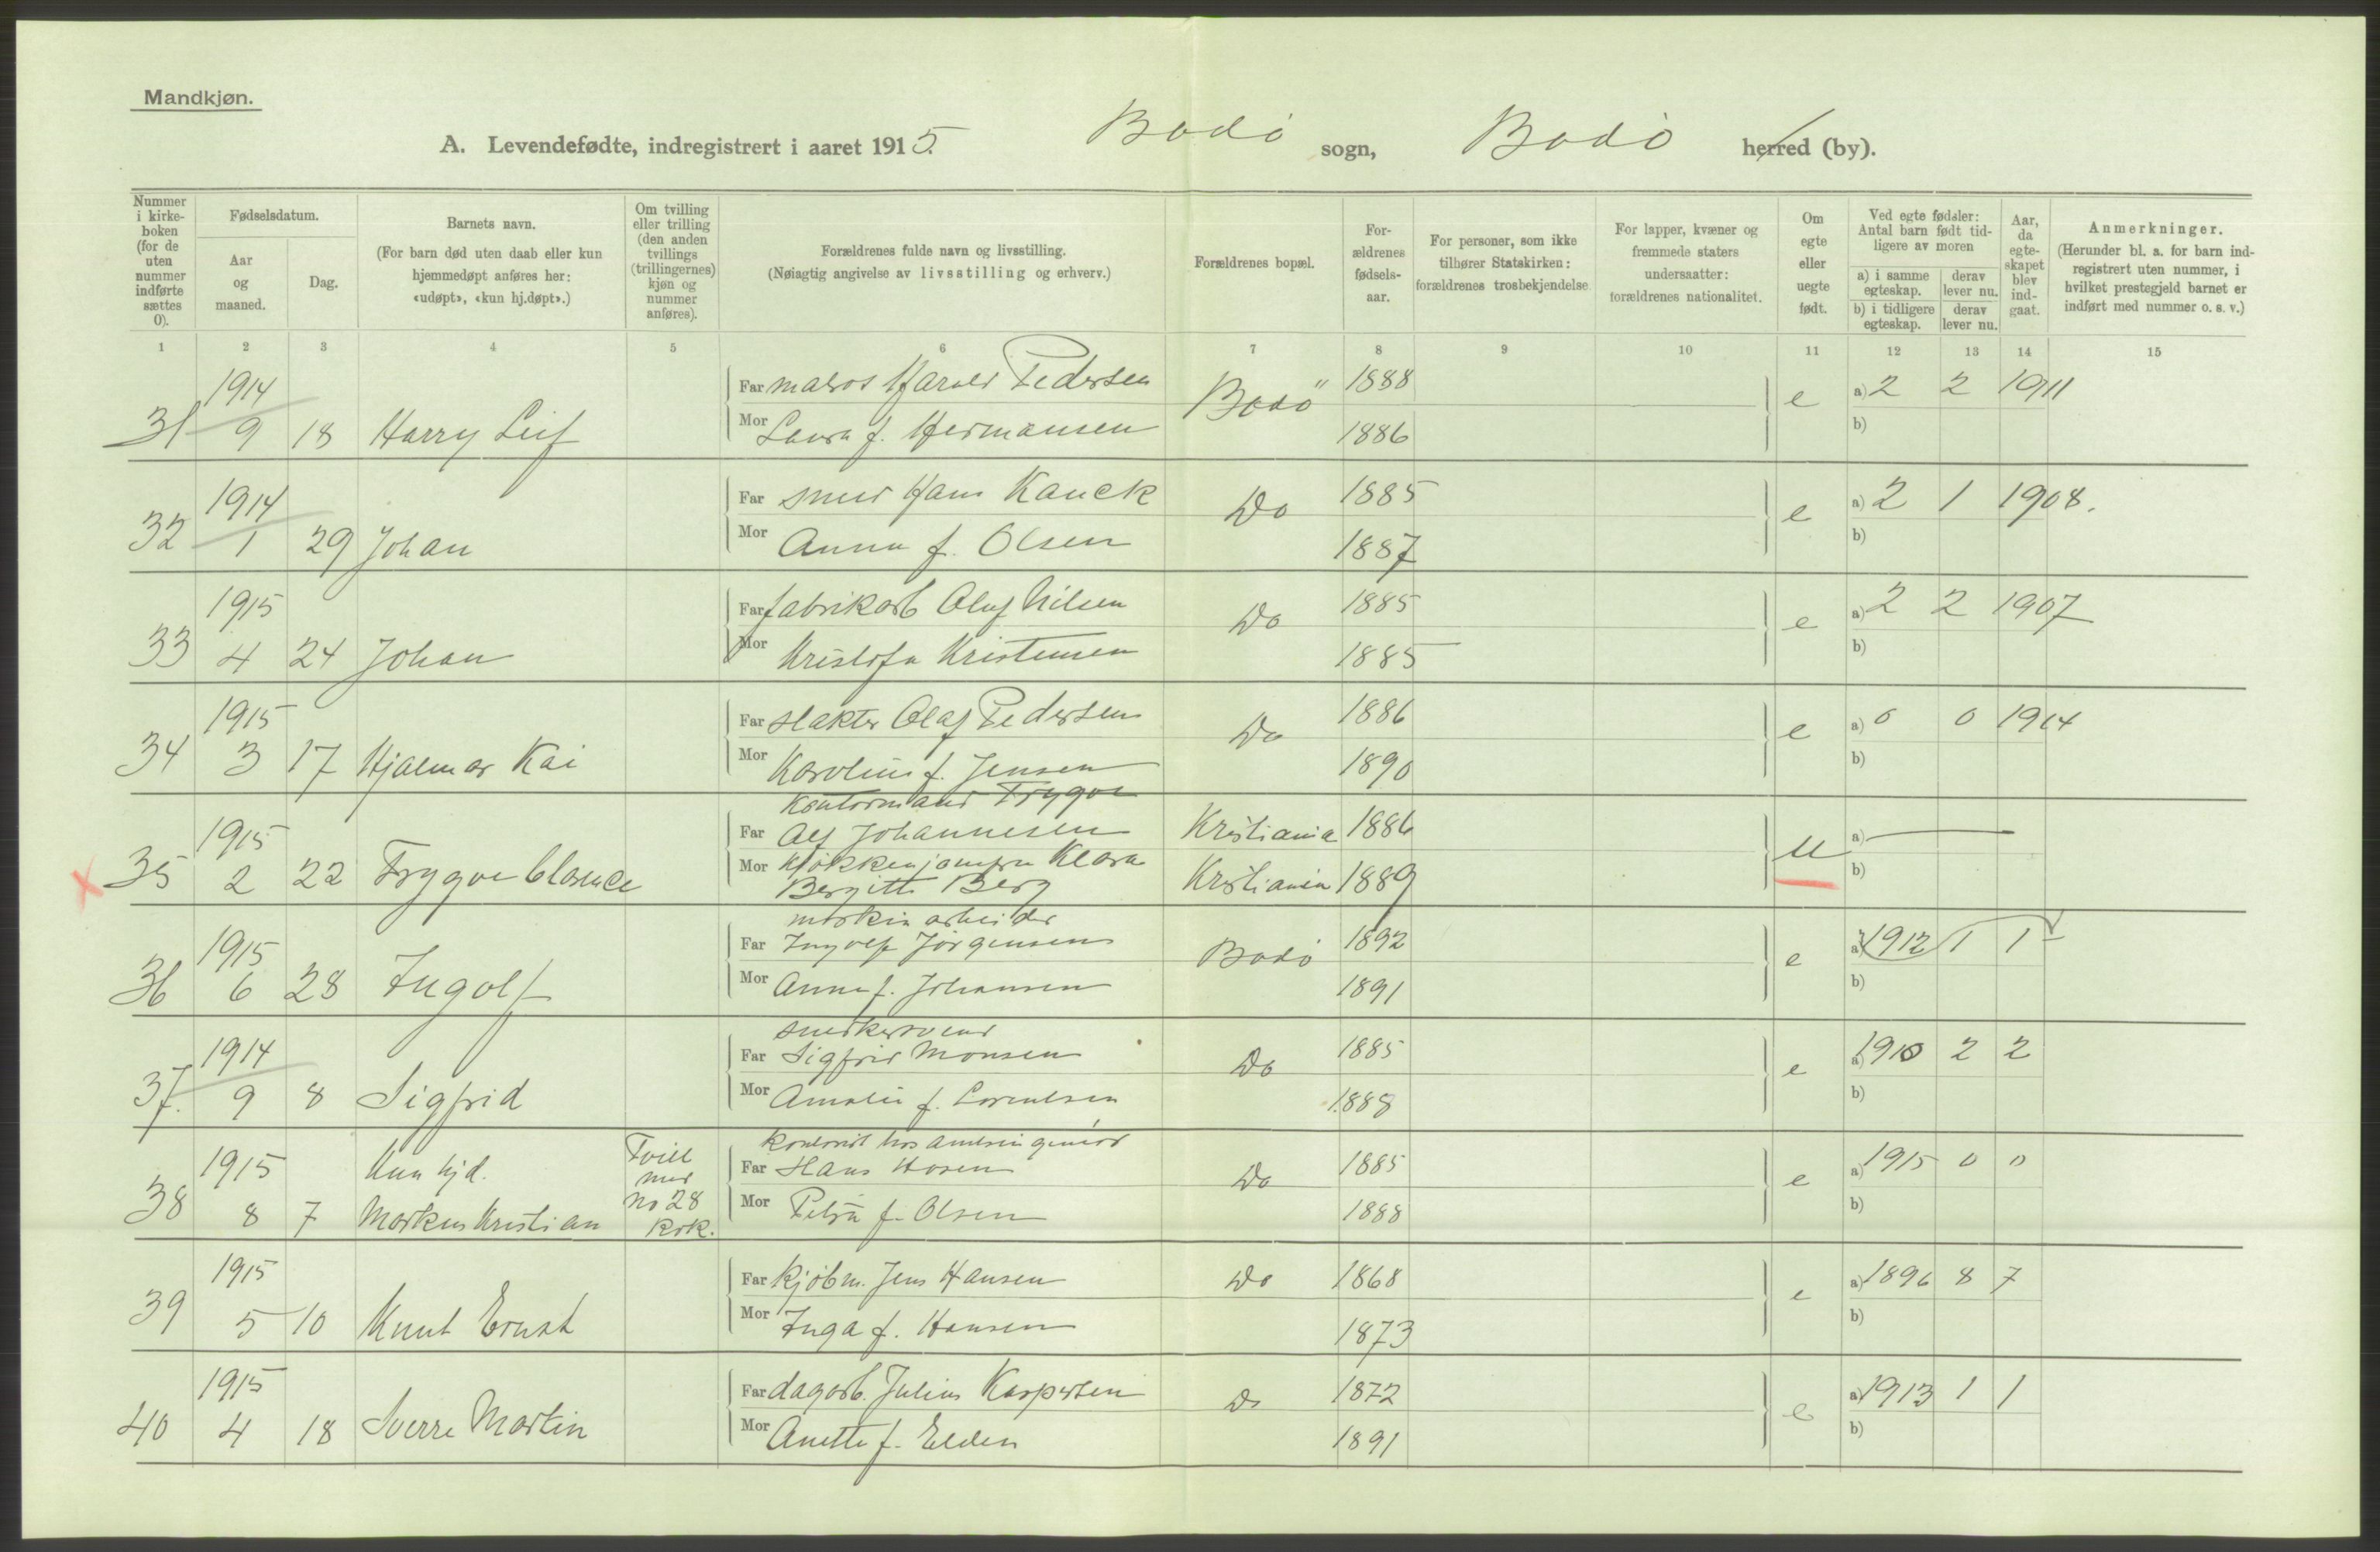 Mandkjøn.
A. Levendefødte, indregistrert i aaret 1915. Bodö sogn, Bodö herred (by).
Nummer i kirke-boken (for de uten nummer indførte sættes 0).
Fødselsdatum.
Aar og maaned.
Dag.
Barnets navn.
(For barn død uten daab eller kun hjemmedøpt anføres her: «udøpt», «kun hj.døpt».)
Om tvilling eller trilling (den anden tvillings (trillingernes) kjøn og nummer anføres).
Forældrenes fulde navn og livsstilling.
(Nøiagtig angivelse av livsstilling og erhverv.)
Forældrenes bopæl.
For-ældrenes fødsels-aar.
For personer, som ikke tilhører Statskirken: forældrenes trosbekjendelse.
For lapper, kvæner og fremmede staters undersaatter: forældrenes nationalitet.
Om egte eller uegte født.
Ved egte fødsler: Antal barn født tid-ligere av moren
a) i samme egteskap. derav lever nu.
b) i tidligere egteskap. derav lever nu.
Aar, da egte-skapet blev ind-gaat.
Anmerkninger.
(Herunder bl. a. for barn ind-registrert uten nummer, i hvilket prestegjeld barnet er indført med nummer o. s. v.)
1 2 3 4 5 6 7 8 9 10 11 12 13 14 15
1914 Far matros Harald Pedersen Bodö 1888 e a) 2 2 1911
31 9 18 Harry Leif Mor Laura f. Hermansen 1886 b)
1914 Far smed Hans Kauck Do 1885 e a) 2 1 1908.
32 1 29 Johan Mor Anna f. Olsen 1887 b)
1915 Far fabrikarb Oluf Nilsen Do 1885 e a) 2 2 1907
33 4 24 Johan Mor Kristofa Kristensen 1885 b)
1915 Far slakter Olaf Pedersen Do 1886 e a) 0 0 1914
34 3 17 Hjalmar Kai Mor Karoline f. Jensen 1890 b)
Kontormand Trygve
1915 Far Alf Johannesen Kristiania 1886 u a)
35 2 22 Trygve Clarence Mor Kjøkkenjomfru Klara
Bergitte Berg Kristiania 1889 b)
maskinarbeider
1915 Far Ingolf Jörgensen Bodö 1892 e a) 1912 1 1
36 6 28 Ingolf Mor Anna f. Johansen 1891 b)
snedkersvend
1914 Far Sigfrid Monsen Do 1885 e a) 1910 2 2
37. 9 8 Sigfrid Mor Amalie f. Lorentsen 1888 b)
kontorist hos amtsingeniør
1915 Kun hjd. Tvill med Far Hans Hosen Do 1885 e a) 1915 0 0
38 8 7 Markus Kristian No 28 kvk. Mor Petra f. Olsen 1888 b)
1915 Far kjöbm. Jens Hansen Do 1868 e a) 1896 8 7
39 5 10 Knut Ernst Mor Inga f. Hansen 1873 b)
1915 Far dagarb. Julius Kaspersen Do 1872 e a) 1913 1 1
40 4 18 Sverre Martin Mor Anette f. Elden 1891 b)